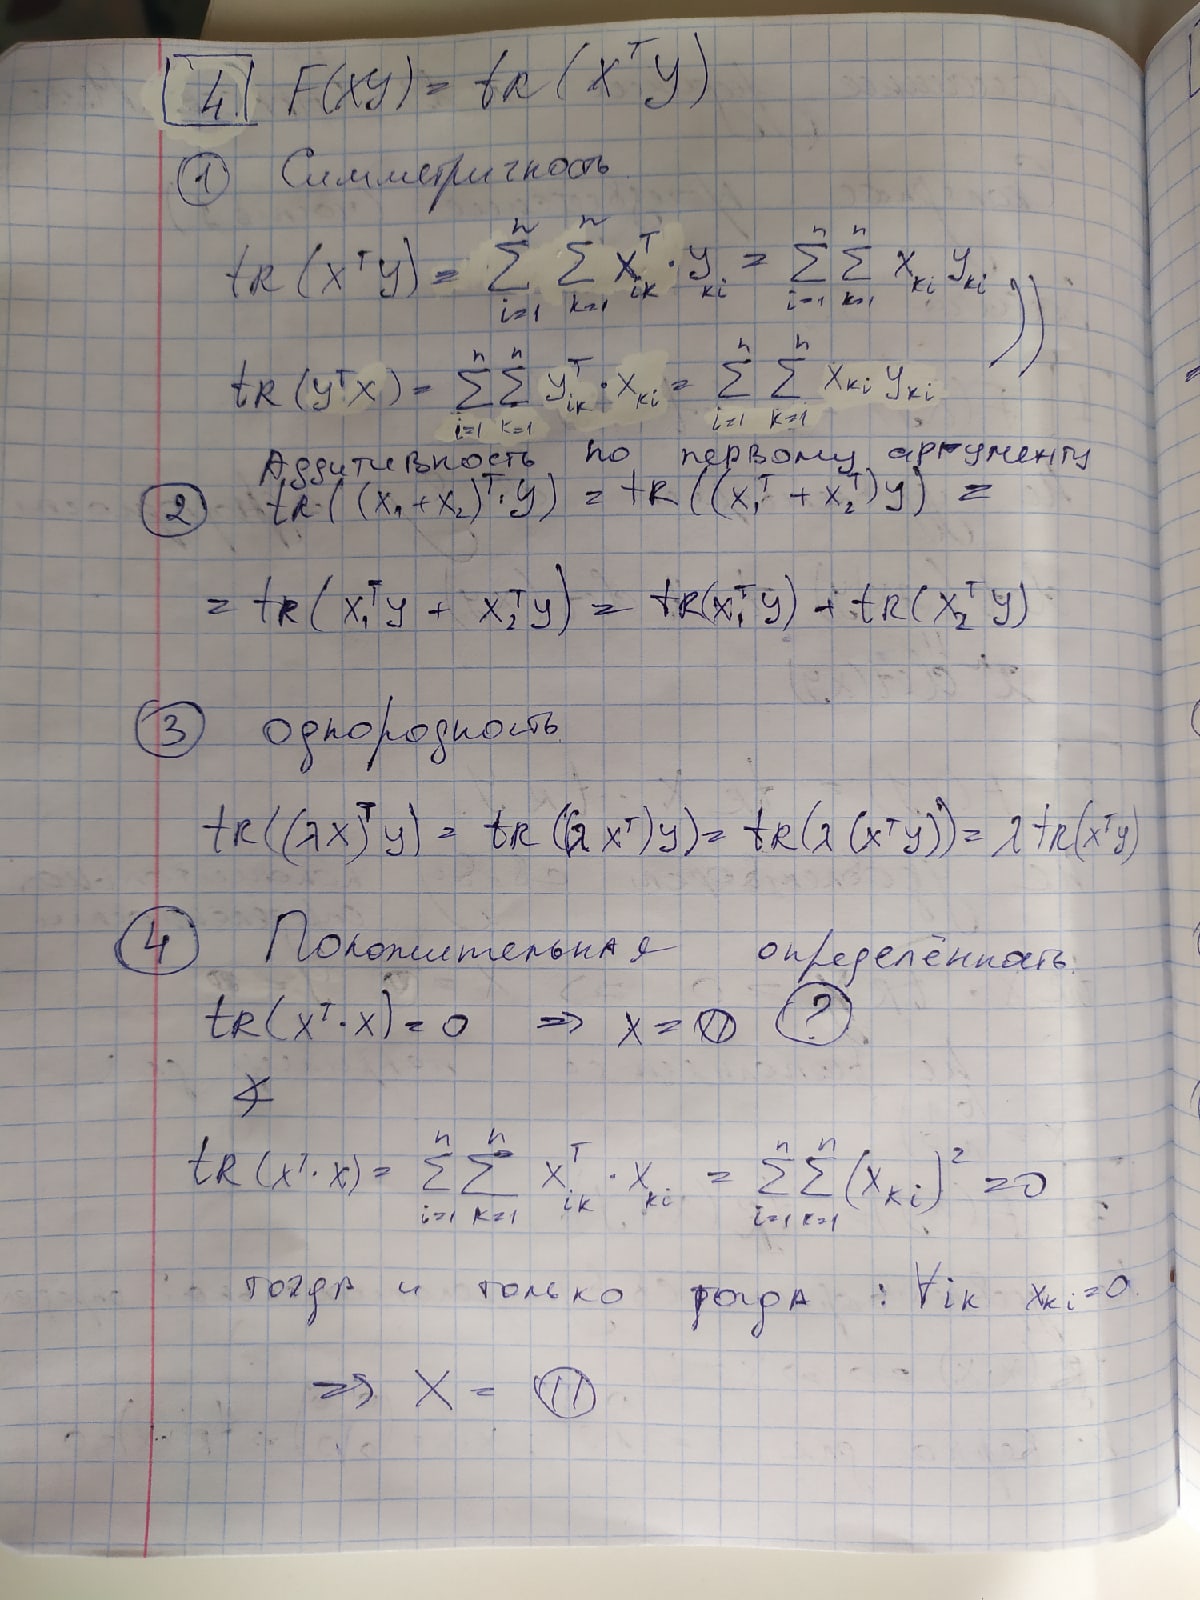 4. F(xy) = tR(x^T y)
① Симметричность.
tR(x^T y) = ∑_{i=1}^{n} ∑_{k=1}^{n} x^T_{ik} · y_{ki} = ∑_{i=1}^{n} ∑_{k=1}^{n} x_{ki} y_{ki}
tR(y^T x) = ∑_{i=1}^{n} ∑_{k=1}^{n} y^T_{ik} · x_{ki} = ∑_{i=1}^{n} ∑_{k=1}^{n} x_{ki} y_{ki}
Аддитивность по первому аргументу
② tR((x_1 + x_2)^T · y) = tR((x_1^T + x_2^T) y) =
= tR(x_1^T y + x_2^T y) = tR(x_1^T y) + tR(x_2^T y)
③ однородность.
tR((λx)^T y) = tR((λ x^T) y) = tR(λ (x^T y)) = λ tR(x^T y)
④ Положительная определённость.
tR(x^T · x) = 0 ⇒ x = 𝟘 ?
tR(x^T · x) = ∑_{i=1}^{n} ∑_{k=1}^{n} x^T_{ik} · x_{ki} = ∑_{i=1}^{n} ∑_{k=1}^{n} (x_{ki})^2 = 0
тогда и только тогда : ∀ik x_{ki} = 0.
⇒ X = 𝟘